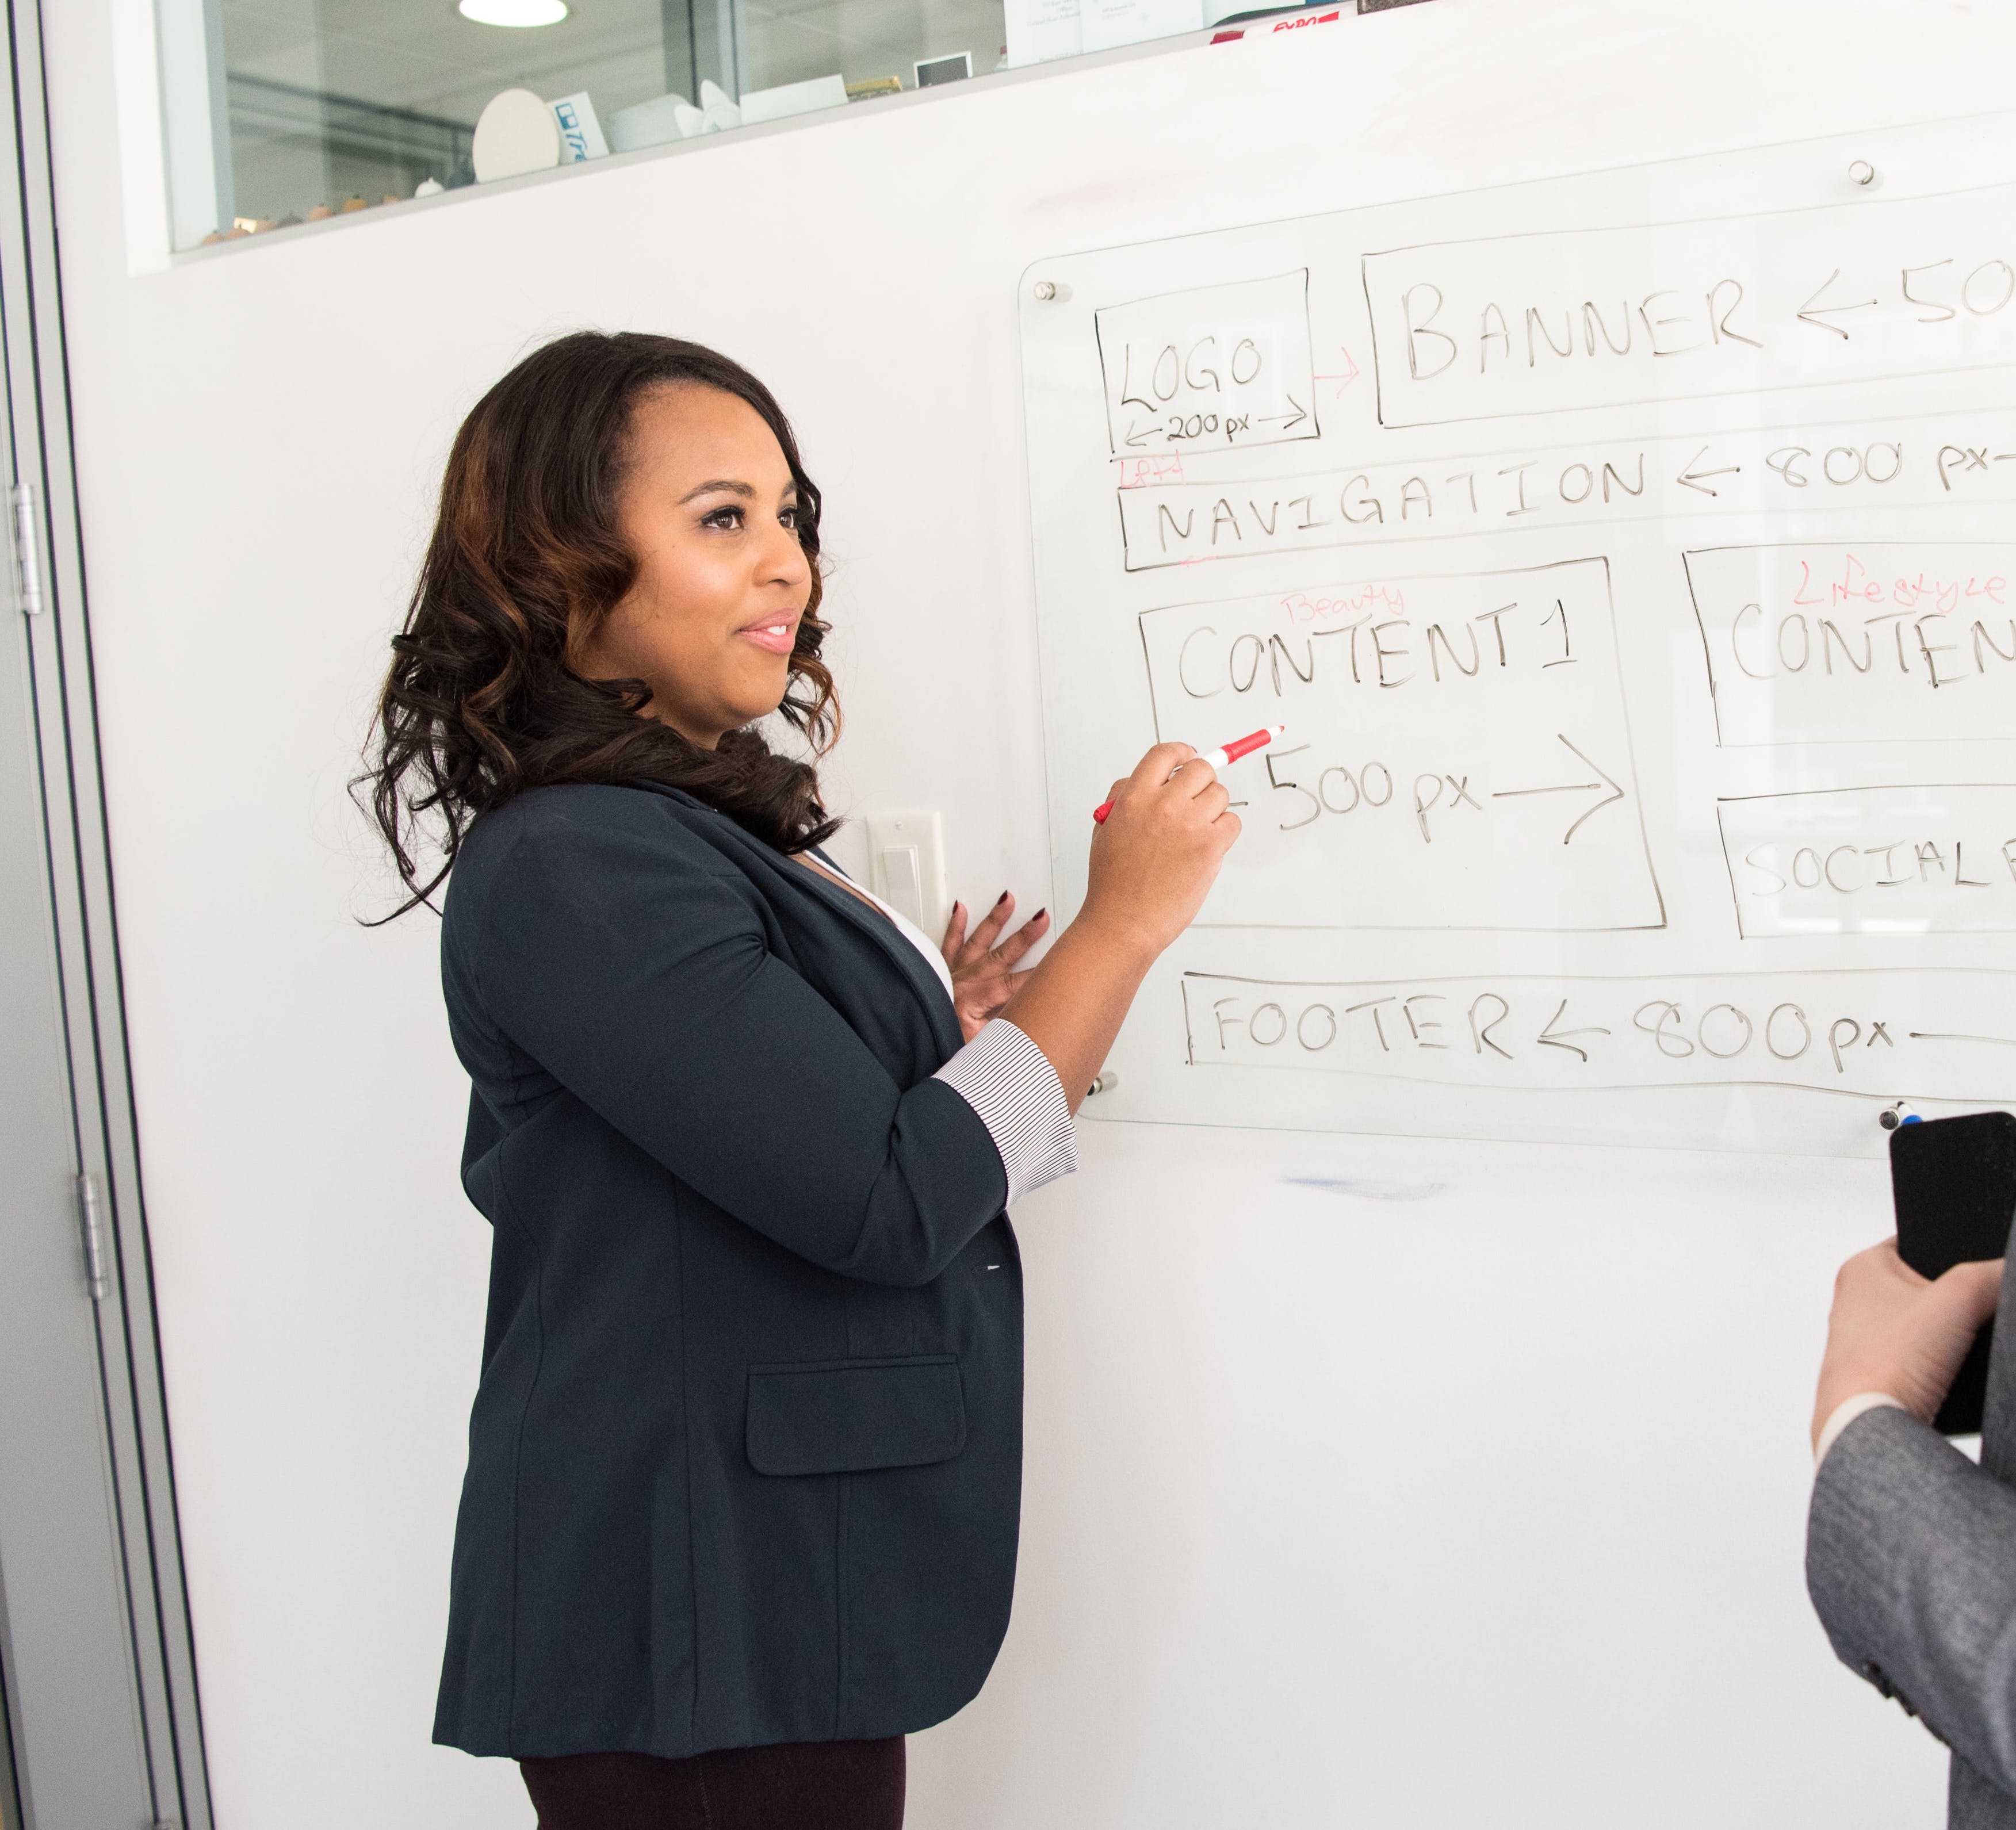 EXPO
LOGO
←200px→
→
BANNER ← 50
Left
NAVIGATION ← 800 px-
Beauty
CONTENT 1
500px→
Lifestyle
CONTEN
SOCIAL
FOOTER ← 800px—